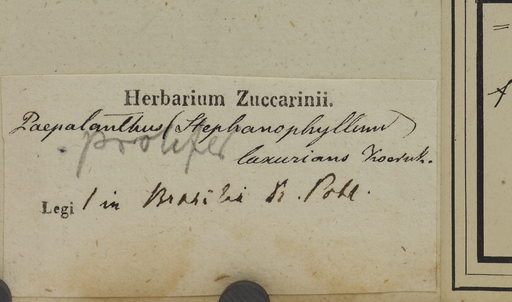 Herbarium Zuccarinii.
Paepalanthus (Stephanophyllum)
prolifer
luxurians Koernk.
Legi in Brasilia Pohl.